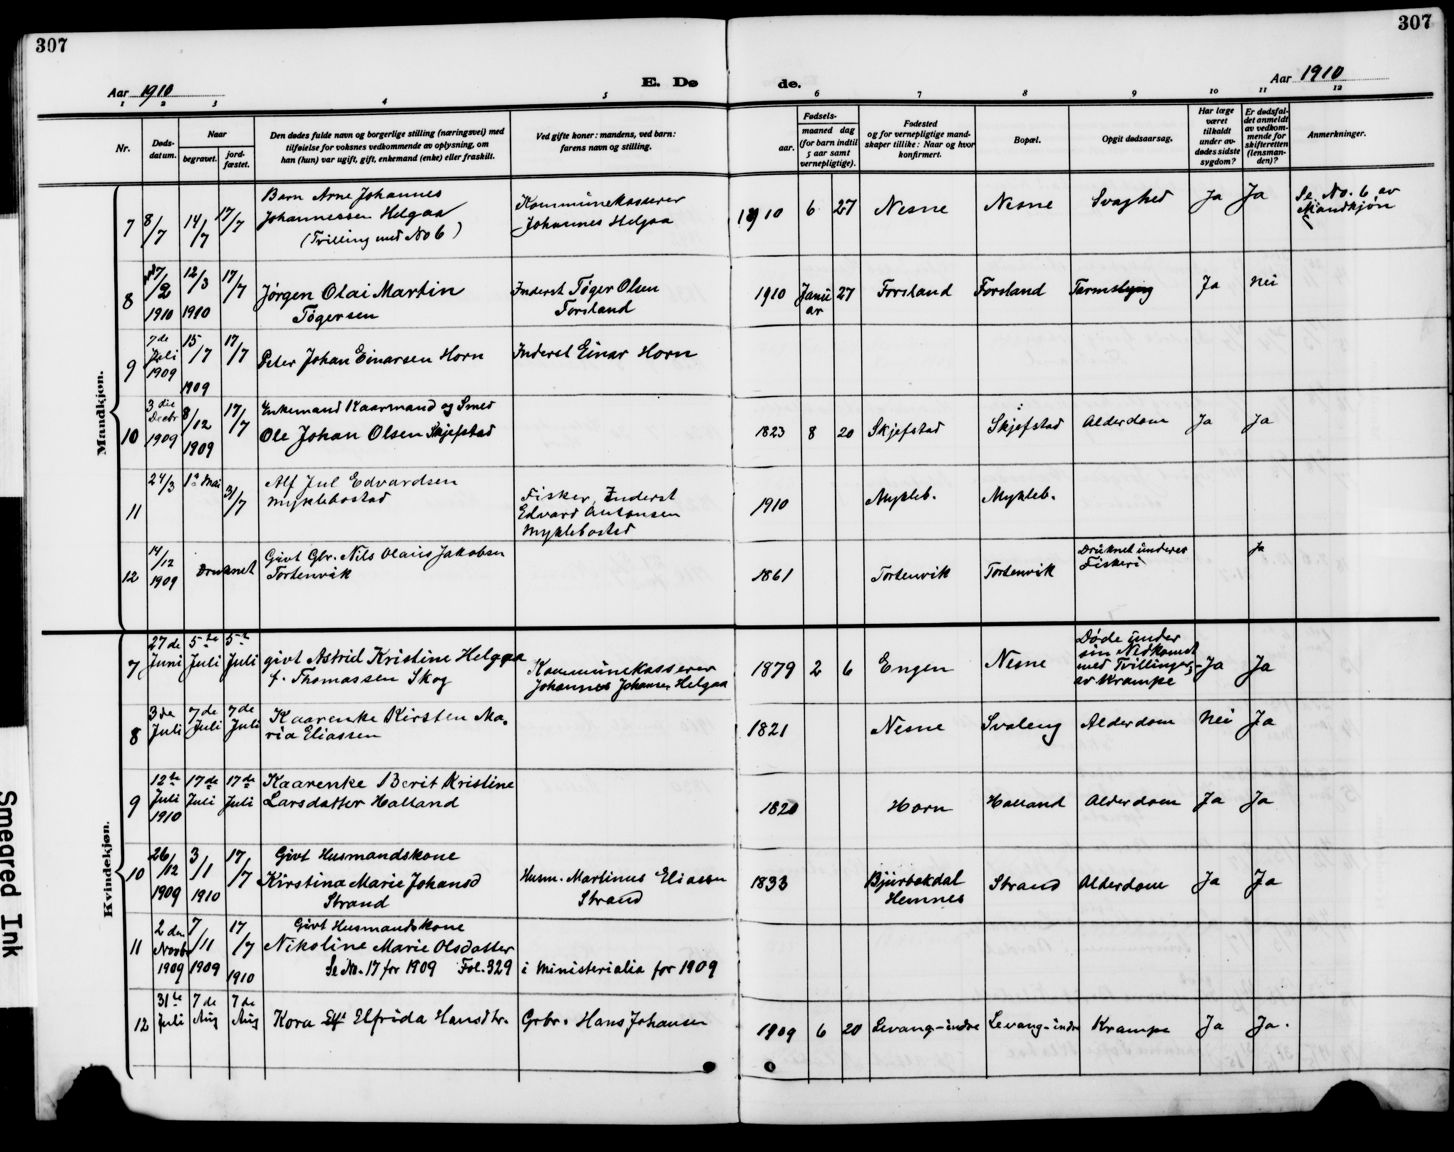 307
307
Aar 1910
E. Dø
de.
Aar 1910
1 2 3 4 5 6 7 8 9 10 11 12
Nr.
Døds-
datum.
Naar
begravet.
jord-
fæstet.
Den dødes fulde navn og borgerlige stilling (næringsvei) med
tilføielse for voksnes vedkommende av oplysning, om
han (hun) var ugift, gift, enkemand (enke) eller fraskilt.
Ved gifte koner: mandens, ved barn:
farens navn og stilling.
Fødsels-
aar.
maaned dag
(for barn indtil
5 aar samt
vernepligtige).
Fødested
og for vernepligtige mand-
skaper tillike: Naar og hvor
konfirmert.
Bopæl.
Opgit dødsaarsag.
Har læge
været
tilkaldt
under av-
dødes sidste
sygdom?
Er dødsfal-
det anmeldt
av vedkom-
mende for
skifteretten
(lensman-
den)?
Anmerkninger.
Mandkjøn.
7 8/7 14/7 17/7 Barn Arne Johannes
Johannessen Helgaa
(Trilling med No 6)
Kommunekasserer
Johannes Helgaa
1910 6 27 Nesne Nesne Svaghed Ja Ja
Se No. 6 av
Mandkjøn
8 /2 1910 12/3 1910 17/7 Jørgen Olai Martin
Tøgersen
Inderst Tøger Olsen
Forsland
1910 Janu
ar 27 Forsland Forsland Ja Nei
9 7de Juli 1909 15/7 1909 17/7 Peter Johan Einarsen Horn Inderst Einar Horn
10 3die Decbr 1909 8/12 1909 17/7 Enkemand Kaarmand og Smed
Ole Johan Olsen Skjefstad
1823 8 20 Skjefstad Skjefstad Alderdom Ja Ja
11 24/3 1ste Mai 31/7 Alf Jul Edvardsen
Myklebostad
Fisker, Inderst
Edvard Antonsen
Myklebostad
1910 Mykleb. Mykleb.
12 14/12 1909 Druknet Givt Gbr. Nils Olaus Jakobsen
Tortenvik
1861 Tortenvik Tortenvik Druknet under
Fiskeri Ja
Kvindekjøn.
7 27de Juni 5te Juli 5te Juli givt Astrid Kristine Helgaa
f. Thomassen Skog
Kommunekasserer
Johannes Johansen Helgaa
1879 2 6 Engen Nesne Døde under
sin Nedkomst
med Trillinger,
av Krampe Ja Ja
8 3de Juli 7de Juli 7de Juli Kaarenke Kirsten Ma-
ria Eliassen
1821 Nesne Svaleng Alderdom Nei Ja
9 12te Juli 1910 17de Juli 17de Juli Kaarenke Berit Kristine
Larsdatter Halland
1820 Horn Halland Alderdom Ja Ja
10 26/12 1909 3/1 1910 17/7 Givt Husmandskone
Kirstina Marie Johansd
Strand
Husm. Martinus Eliassen
Strand
1833 Bjurbækdal
Hemnes Strand Alderdom Ja Ja
11 2den Novbr 1909 7/11 1909 17/7 1910 Givt Husmandskone
Nikoline Marie Olsdatter
Se No. 17 for 1909 Fol. 329 i Ministerialia for 1909
12 31te Juli 7de Aug 7de Aug Kora Elfrida Hansdtr. Grbr. Hans Johansen
1909 6 20 Levang-indre Levang-indre Krampe Ja Ja.
Smeared Ink